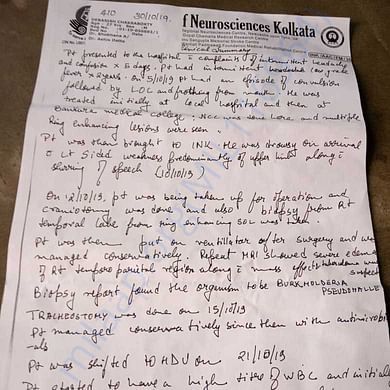 410 30/10/19.
DEBASISH CHAKRABORTY
f Neurosciences Kolkata
Clinical Summary
Pt presented to the hospital c̄ complaints of intermittent headache
and confusion x 5 days. Pt had intermittent headache low grade
fever x 2 years. on 5/10/19 pt had an episode of convulsion
followed by LOC and frothing from mouth. He was
treated initially at local hospital and then at
Bankura medical college. NCC was done here and multiple
Ring enhancing lesions were seen.
Pt was then brought to INK. He was drowsy on arrival
c̄ Lt sided weakness predominantly of upper limb along c̄
slurring of speech (10/10/19)
On 12/10/19, pt was being taken up for operation and
craniotomy was done and also biopsy from Rt
temporal lobe from ring enhancing SOL was taken.
Pt was then put on ventilator after surgery and was
managed conservatively. Repeat MRI showed severe edema
of Rt temporo parietal region along c̄ mass effect
suspect
Biopsy report found the organism to be BURKHOLDERIA
PSEUDOMALLE
TRACHEOSTOMY was done on 15/10/19
Pt managed conservatively since then with antimicrobi
-als
Pt was shifted to HDU on 21/10/19
Pt started to have a high titre of WBC and initial